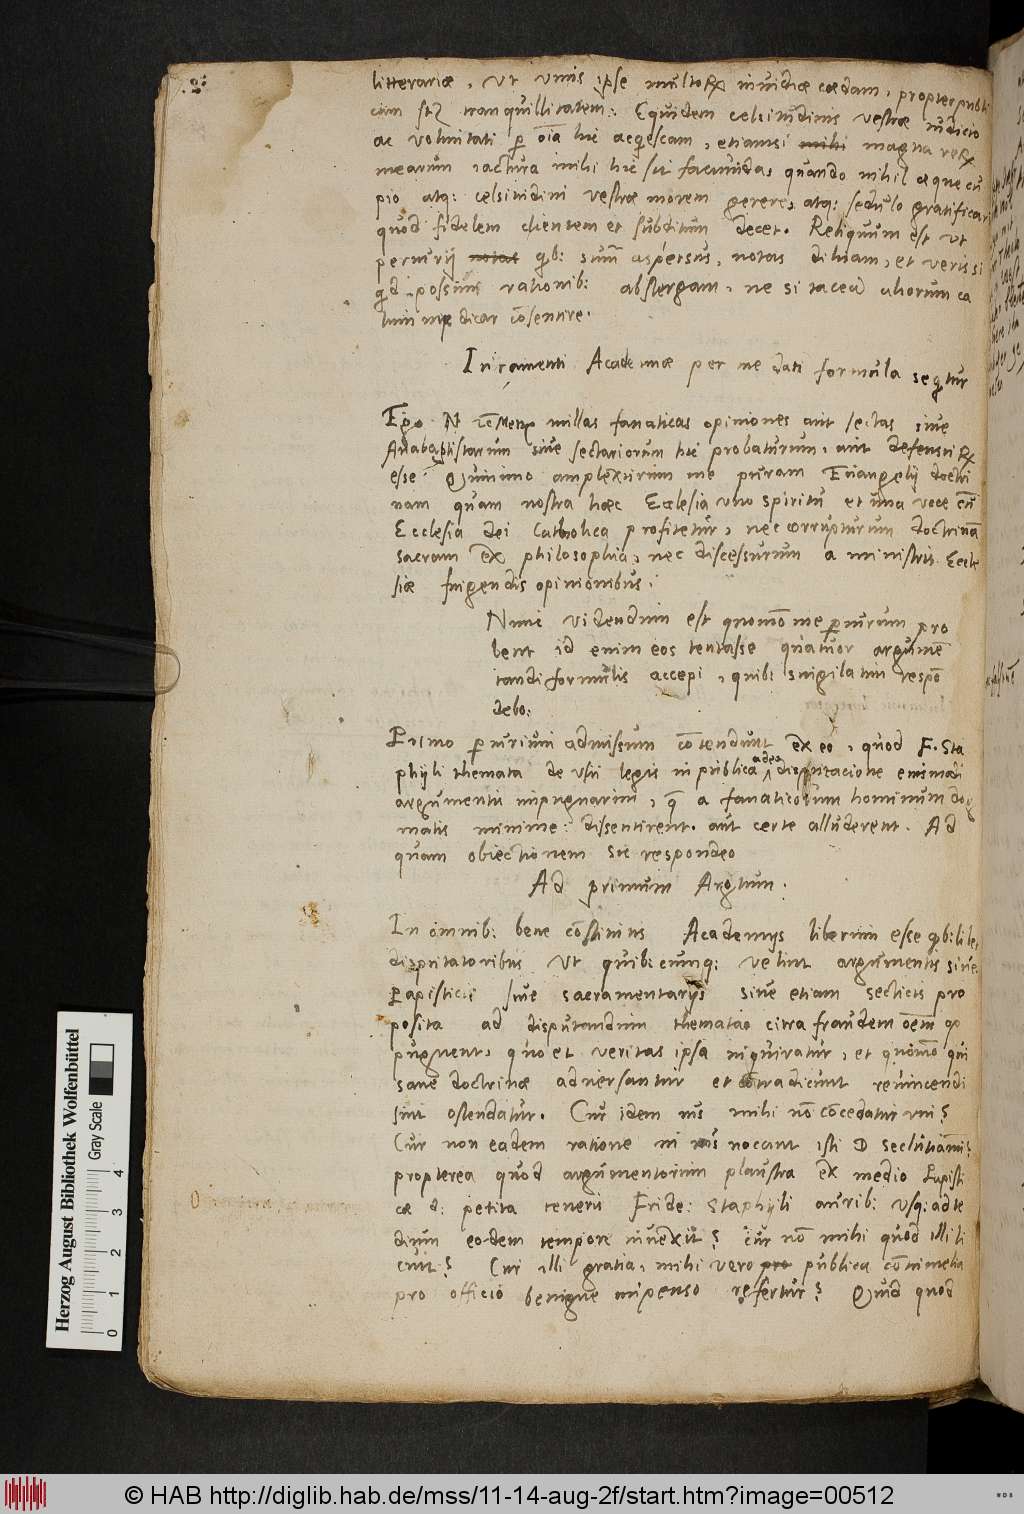 .2.
litterariæ, ut unus ipse multorꝝ inuidiæ cædam, propter publi
cam stz tranquillitatem: Equidem celsitudinis vestræ iudicio
ac voluntati ꝑ oīa hic acqescam, etiamsi mihi magna rerꝝ
mearum iactura mihi hic sit facienda, quando nihil æque cu
pio atq: celsitudini vestræ morem gerere, atq: sedulo gratificari
quod fidelem clientem et subditum decet. Reliquum est ut
periurij notas qb: sum aspersus, notas diluam, et veris si
qd possum rationib: abstergam, ne si taceā aliorum ca
lumnijs dicar cōsentire.
Iuramenti Academiæ per me dati formula seqtur
Ego N nullas fanaticas opiniones aut sectas siue
Anabaptistarum siue sectariorum hic probaturum, aut defensurꝝ
esse Quinimo amplexurum me puram Euangelij doctri
nam quam nostra hæc Ecclesia uno spiritu et una voce cū
Ecclesia dei Catholica profitetur, nec corrupturum doctrinā
sacram ex philosophia, nec discessurum a ministris Eccle
siæ fingendis opinionibus.
Nunc videndum est quomō me ꝑiurum pro
bent id enim eos tentasse quatuor argumē
tandi formulis accepi, quib: singilatim respō
debo:
Primo ꝑiurium admissum cōtendunt ex eo, quod F. Sta
phyli themata de usu legis in publica adeo disputacione eiusmodi
argumentis impugnarim, q̄ a fanaticorum hominum dog
matis minime dissentirent, aut certe alluderent. Ad
quam obiectionem sic respondeo
Ad primum Argtum.
In omnib: bene cōstitutis Academijs liberum esse qb:libet
disputatoribus ut quib:cunq: velint argumentis siue
Papisticis siue sacramentarijs siue etiam secticis pro
posita ad disputandum themata citra fraudem oēm op
pugnent, quo et veritas ipsa inquiratur, et quomō qui
sane doctrinæ aduersantur et contradicunt reuincendi
sint ostendatur. Cur idem ius mihi nō cōcedatur uni?
Cur non eadem ratione in ius uocant isti D
propterea quod argumentorum plaustra ex medio Papisti
cæ petita ueneri Fride: Staphyli aurib: usq: ad te
dium eodem tempore inuexit? cur nō mihi quod illi li
cuit? Cur illi gratia, mihi vero pro publica cōtumelia
pro officio benigne impenso refertur? Quid quod
Herzog August Bibliothek Wolfenbüttel
Gray Scale
0 1 2 3 4
© HAB http://diglib.hab.de/mss/11-14-aug-2f/start.htm?image=00512